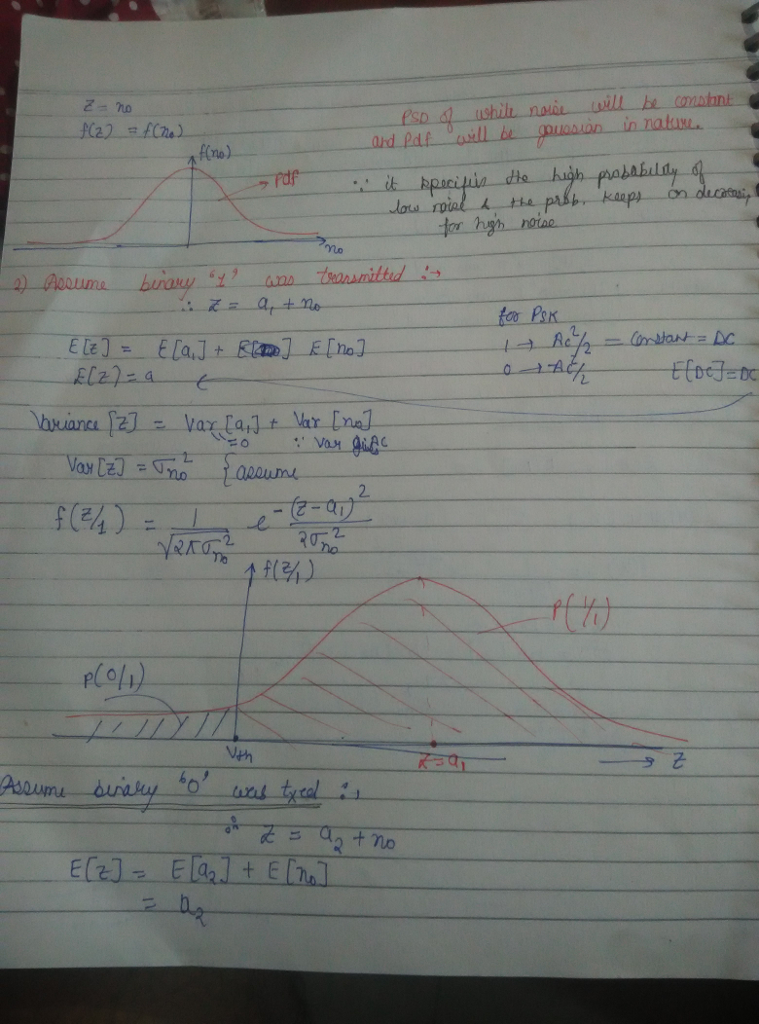 z = n₀
f(z) = f(n₀)
PSD of white noise will be constant
and Pdf will be gaussian in nature.
f(n₀)
→ Pdf
∵ it specifies the high probability of
low noise & the prob. keeps on decreasing
for high noise
n₀
2) Assume binary '1' was transmitted :→
∴ z = a₁ + n₀
for PSK
1 → Ac²/2 = constant = DC
0 → -Ac²/2 E[DC]=DC
E[z] = E[a₁] + E[n₀]
E[z] = a
Variance [z] = Var [a₁] + Var [n₀]
=0 ∵ Var AC
Var[z] = σn₀² {assume
f(z/1) = 1/√2πσn₀² e^-(z-a₁)²/2σn₀²
f(z/1)
P(1/1)
P(0/1)
Vth
z=a₁
→ z
Assume binary '0' was txed :→
∴ z = a₂ + n₀
E[z] = E[a₂] + E[n₀]
= a₂